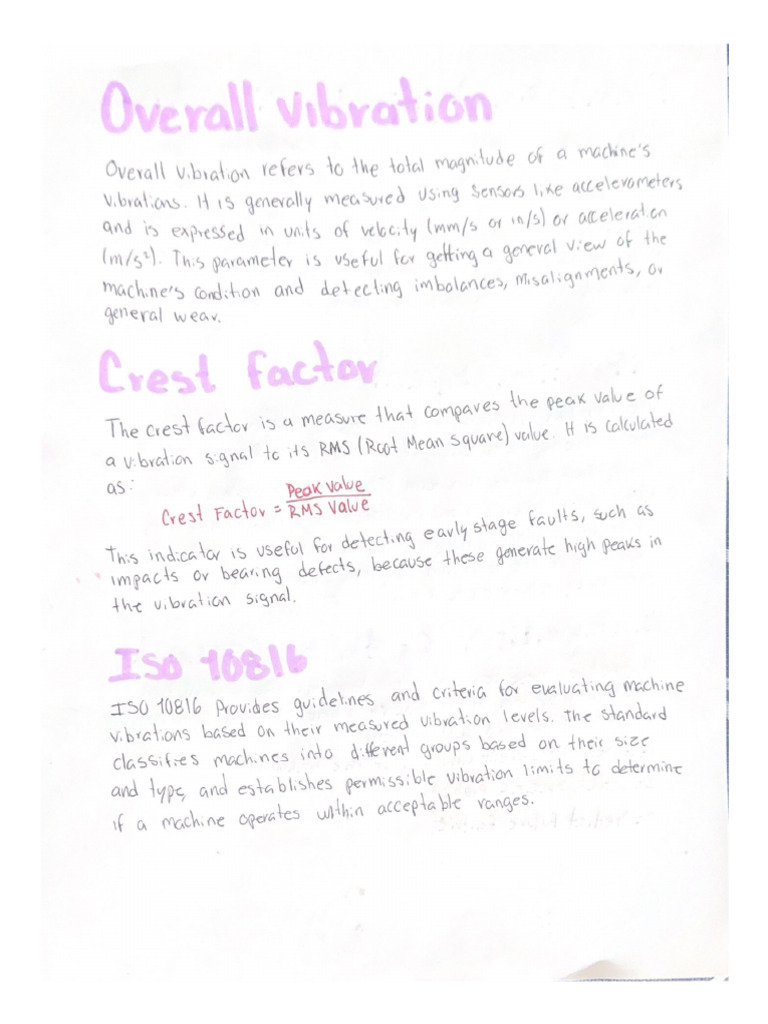 Overall vibration
Overall vibration refers to the total magnitude of a machine's
vibrations. It is generally measured using sensors like accelerometers
and is expressed in units of velocity (mm/s or in/s) or acceleration
(m/s²). This parameter is useful for getting a general view of the
machine's condition and detecting imbalances, misalignments, or
general wear.
Crest factor
The crest factor is a measure that compares the peak value of
a vibration signal to its RMS (Root Mean Square) value. It is calculated
as:
Crest Factor = Peak Value / RMS Value
This indicator is useful for detecting early stage faults, such as
impacts or bearing defects, because these generate high peaks in
the vibration signal.
ISO 10816
ISO 10816 Provides guidelines and criteria for evaluating machine
vibrations based on their measured vibration levels. The standard
classifies machines into different groups based on their size
and type, and establishes permissible vibration limits to determine
if a machine operates within acceptable ranges.